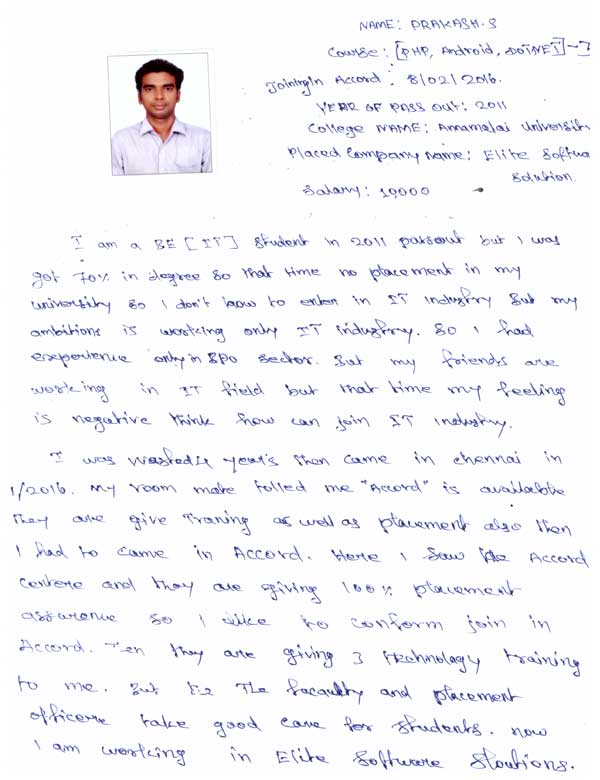 NAME: PRAKASH.S
Course: [PHP, Android, DOTNET]
Joining in Accord: 8/02/2016.
YEAR OF PASS OUT: 2011
College NAME: Annamalai Universit
Placed Company Name: Elite Softwa
Solution.
Salary: 10,000
I am a BE [IT] Student in 2011 passout but I was
got 70% in degree so that time no placement in my
university so I don't know to enter in IT Industry But my
ambitions is working only IT industry. So I had
experience only in BPO Sector. But my friends are
working in IT field but that time my feeling
is negative think how can join IT Industry.
I was wasted 4 year's then came in chennai in
1/2016. My room mate tolled me "Accord" is available
They are give Traning as well as placement also then
I had to came in Accord. Here I Saw the Accord
centere and they are giving 100% placement
assurence so I like to conform join in
Accord. Ten they are giving 3 technology training
to me. But The faculity and placement
officere take good care for students. now
I am working in Elite Software Sloutions.